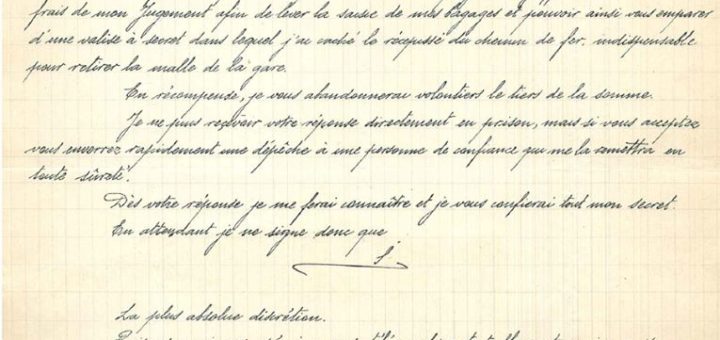 frais de mon Jugement afin de lever la saisie de mes bagages et pouvoir ainsi vous emparer
d'une valise à secret dans lequel j'ai caché le récépissé du chemin de fer, indispensable
pour retirer la malle de la gare.
En récompense, je vous abandonnerai volontiers le tiers de la somme.
Je ne puis recevoir votre réponse directement en prison, mais si vous acceptez
vous enverrez rapidement une dépêche à une personne de confiance qui me la remettra en
toute sûreté.
Dès votre réponse je me ferai connaître et je vous confierai tout mon secret.
En attendant je ne signe donc que
S.
La plus absolue discrétion.